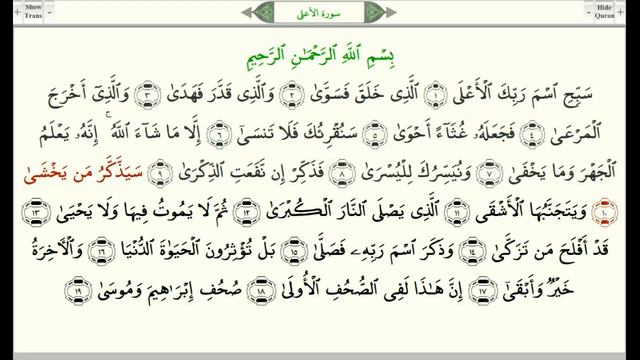 Show Trans
سورة الأعلى
Hide Quran
بِسْمِ ٱللَّهِ ٱلرَّحْمَـٰنِ ٱلرَّحِيمِ
سَبِّحِ ٱسْمَ رَبِّكَ ٱلْأَعْلَى ١ ٱلَّذِى خَلَقَ فَسَوَّىٰ ٢ وَٱلَّذِى قَدَّرَ فَهَدَىٰ ٣ وَٱلَّذِىٓ أَخْرَجَ
ٱلْمَرْعَىٰ ٤ فَجَعَلَهُۥ غُثَآءً أَحْوَىٰ ٥ سَنُقْرِئُكَ فَلَا تَنسَىٰٓ ٦ إِلَّا مَا شَآءَ ٱللَّهُ ۚ إِنَّهُۥ يَعْلَمُ
ٱلْجَهْرَ وَمَا يَخْفَىٰ ٧ وَنُيَسِّرُكَ لِلْيُسْرَىٰ ٨ فَذَكِّرْ إِن نَّفَعَتِ ٱلذِّكْرَىٰ ٩ سَيَذَّكَّرُ مَن يَخْشَىٰ
١٠ وَيَتَجَنَّبُهَا ٱلْأَشْقَى ١١ ٱلَّذِى يَصْلَى ٱلنَّارَ ٱلْكُبْرَىٰ ١٢ ثُمَّ لَا يَمُوتُ فِيهَا وَلَا يَحْيَىٰ ١٣
قَدْ أَفْلَحَ مَن تَزَكَّىٰ ١٤ وَذَكَرَ ٱسْمَ رَبِّهِۦ فَصَلَّىٰ ١٥ بَلْ تُؤْثِرُونَ ٱلْحَيَوٰةَ ٱلدُّنْيَا ١٦ وَٱلْـَٔاخِرَةُ
خَيْرٌ وَأَبْقَىٰٓ ١٧ إِنَّ هَـٰذَا لَفِى ٱلصُّحُفِ ٱلْأُولَىٰ ١٨ صُحُفِ إِبْرَٰهِيمَ وَمُوسَىٰ ١٩